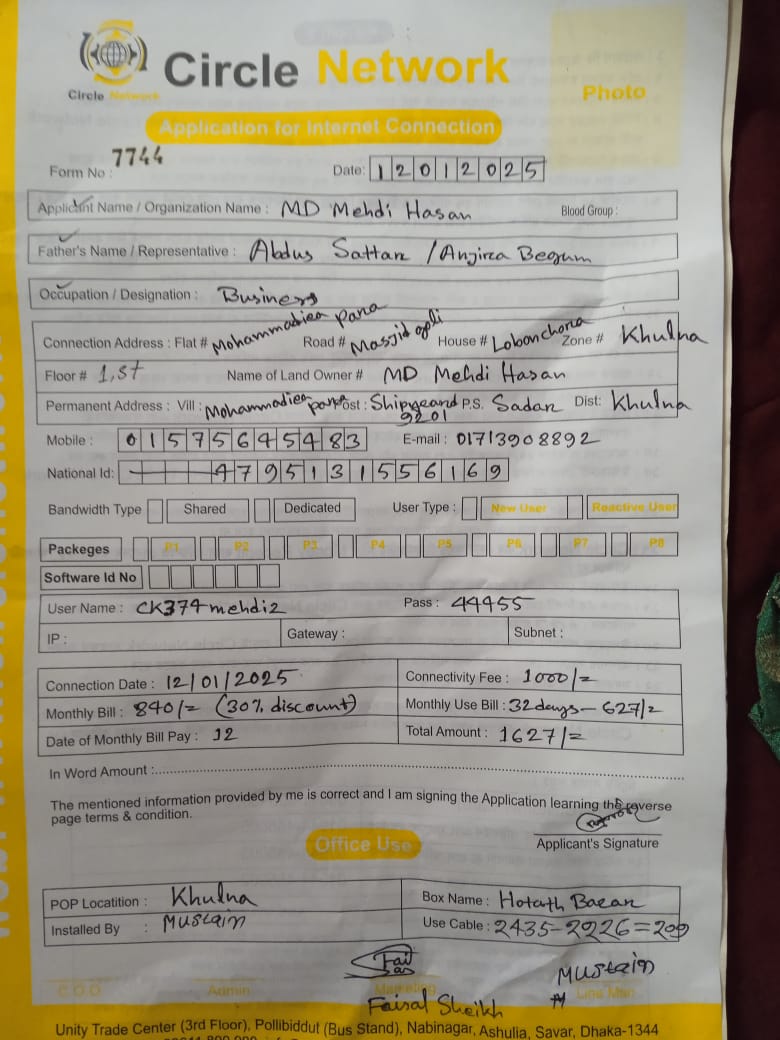 Circle Network
Circle Network
Photo
Application for Internet Connection
Form No : 7744
Date: 12012025
Applicant Name / Organization Name : MD Mehdi Hasan Blood Group :
Father's Name / Representative : Abdus Sattar / Anjira Begum
Occupation / Designation : Business
Connection Address : Flat # Mohammadiea para Road # Masjid goli House # Lobonchora Zone # Khulna
Floor # 1,st Name of Land Owner # MD Mehdi Hasan
Permanent Address : Vill : Mohammadiea para Post : Shipyeard 9201 P.S. Sadar Dist: Khulna
Mobile : 01575645483 E-mail : 01713908892
National Id: 4795131556169
Bandwidth Type Shared Dedicated User Type : New User Reactive User
Packeges P1 P2 P3 P4 P5 P6 P7 P8
Software Id No
User Name : CK374mehdi2 Pass : 44455
IP : Gateway : Subnet :
Connection Date : 12/01/2025 Connectivity Fee : 1000/=
Monthly Bill : 840/= (30% discount) Monthly Use Bill : 32days - 627/=
Date of Monthly Bill Pay : 12 Total Amount : 1627/=
In Word Amount :
The mentioned information provided by me is correct and I am signing the Application learning the reverse
page terms & condition.
Applicant's Signature
Office Use
POP Locatition : Khulna Box Name : Hotath Bazar
Installed By : Mustain Use Cable : 2435-2226=209
Mustain
C.O.O Admin Marketing Line Man
Faisal Sheikh
Unity Trade Center (3rd Floor), Pollibiddut (Bus Stand), Nabinagar, Ashulia, Savar, Dhaka-1344